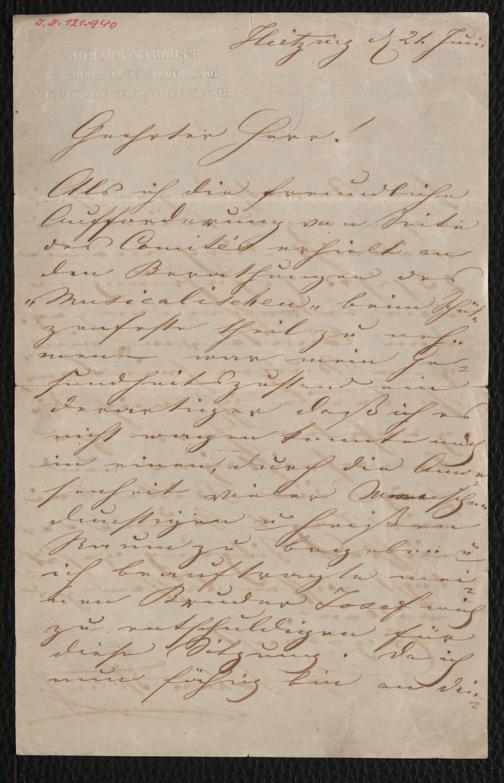 J.N. 121.940
JOHANN STRAUSS
Hietzing d 21. Juni
Geehrter Herr!
Als ich die freundliche
Aufforderung von Seite
des Comités erhielt an
den Berathungen des
„Musicalischen„ beim Schü-
tzenfeste theil zu neh-
men – war mein Ge-
sundheitszustand ein
derartiger daß ich es
nicht wagen konnte mich
in einen, durch die Anwe-
senheit vieler Menschen
dunstigen u heißen
Raum zu begeben u
ich beauftragte mei-
nen Bruder Josef mich
zu entschuldigen für
diese Sitzung. Da ich
nun fähig bin an die-